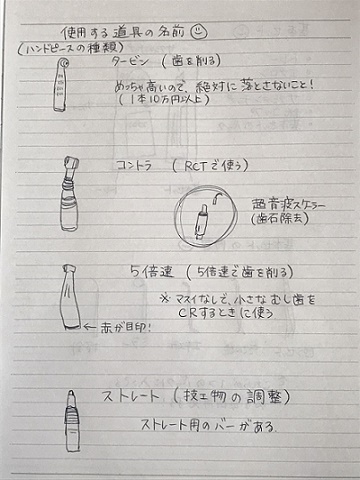 使用する道具の名前
(ハンドピースの種類)
タービン (歯を削る)
めっちゃ高いので、絶対に落とさないこと!
(1本10万円以上)
コントラ (RCTで使う)
超音波スケーラー
(歯石除去)
5倍速 (5倍速で歯を削る)
※ マスイなしで、小さなむし歯を
CRするときに使う
← 赤が目印!
ストレート (技工物の調整)
ストレート用のバーがある.